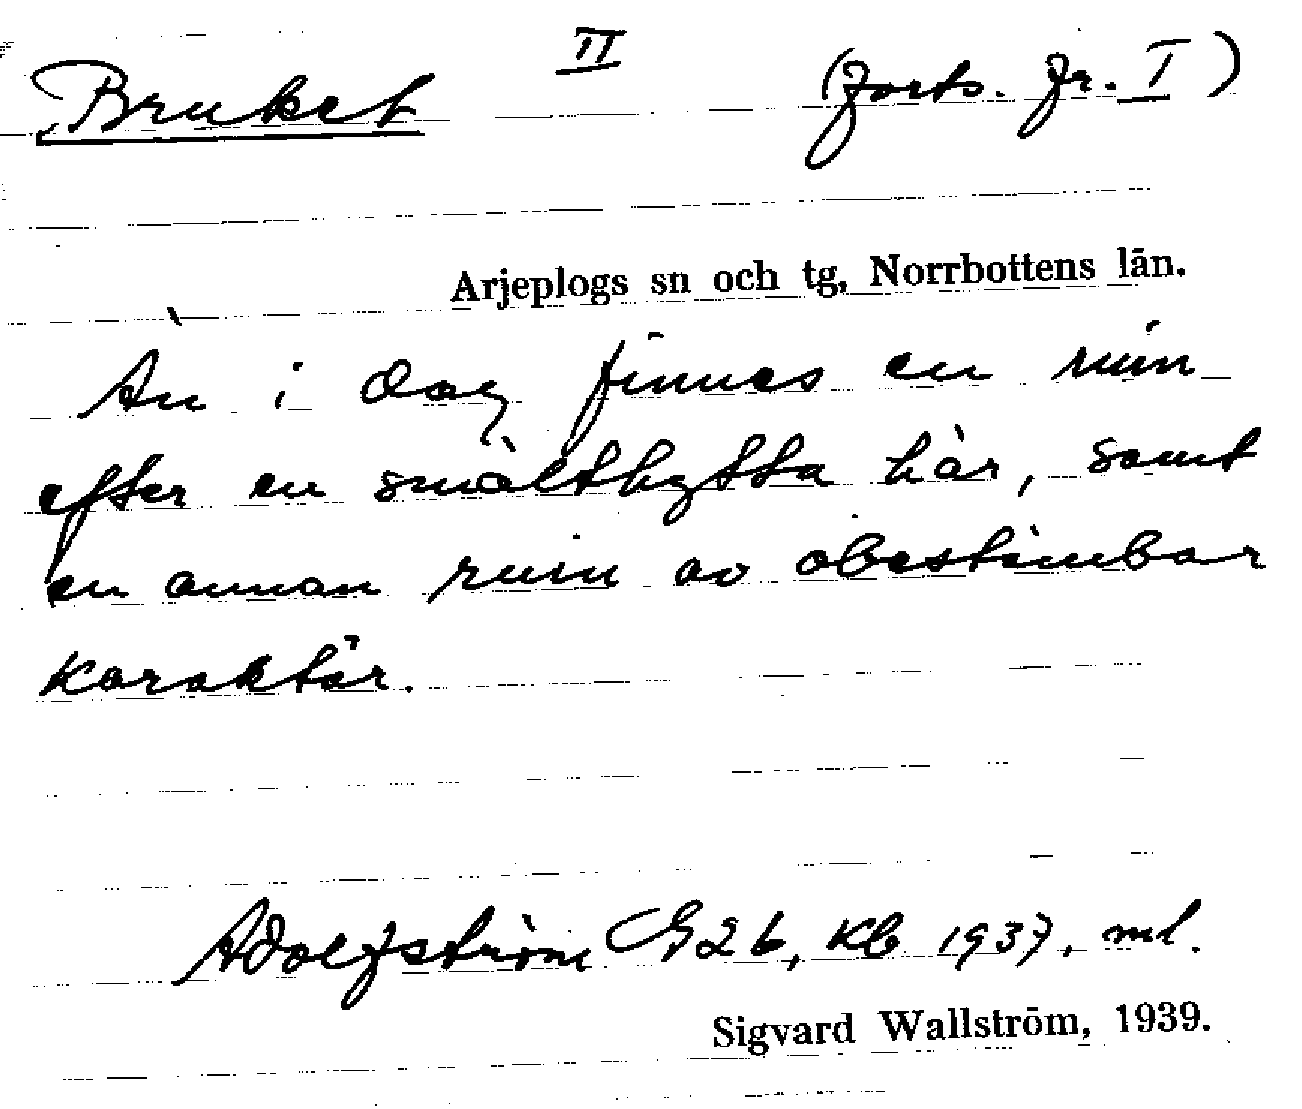 Bruket II (forts. fr. I)
Arjeplogs sn och tg, Norrbottens län.
Än i dag finnes en ruin
efter en smälthytta här, samt
en annan ruin av obestämbar
karaktär.
Adolfström G 26, Kb 1937, ml.
Sigvard Wallström, 1939.